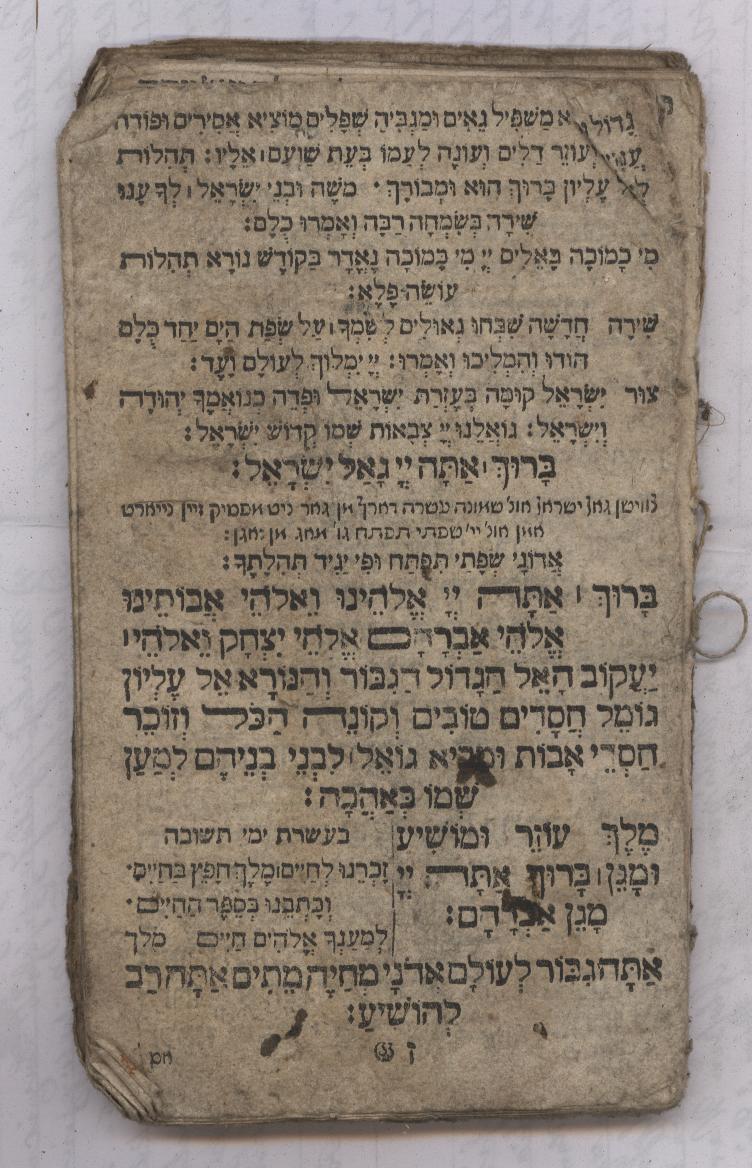 גָּדוֹל וְנוֹרָא מַשְׁפִּיל גֵּאִים וּמַגְבִּיהַּ שְׁפָלִים מוֹצִיא אֲסִירִים וּפוֹדֶה
וְעוֹזֵר דַּלִּים וְעוֹנֶה לְעַמּוֹ בְּעֵת שַׁוְעָם אֵלָיו: תְּהִלּוֹת
לְאֵל עֶלְיוֹן בָּרוּךְ הוּא וּמְבוֹרָךְ · מֹשֶׁה וּבְנֵי יִשְׂרָאֵל לְךָ עָנוּ
שִׁירָה בְּשִׂמְחָה רַבָּה וְאָמְרוּ כֻלָּם:
מִי כָמוֹכָה בָּאֵלִים יְיָ מִי כָּמוֹכָה נֶאְדָּר בַּקּוֹדֶשׁ נוֹרָא תְהִלּוֹת
עוֹשֵׂה פֶלֶא:
שִׁירָה חֲדָשָׁה שִׁבְּחוּ גְאוּלִים לְשִׁמְךָ עַל שְׂפַת הַיָּם יַחַד כֻּלָּם
הוֹדוּ וְהִמְלִיכוּ וְאָמְרוּ: יְיָ יִמְלוֹךְ לְעוֹלָם וָעֶד:
צוּר יִשְׂרָאֵל קוּמָה בְּעֶזְרַת יִשְׂרָאֵל וּפְדֵה כִנְואֻמֶךָ יְהוּדָה
וְיִשְׂרָאֵל: גּוֹאֲלֵנוּ יְיָ צְבָאוֹת שְׁמוֹ קְדוֹשׁ יִשְׂרָאֵל:
בָּרוּךְ אַתָּה יְיָ גָּאַל יִשְׂרָאֵל:
צווישן גאל ישראל אונ' שמונה עשרה דארף מן גאר ניט מפסיק זיין נייארט
אמן אונ' יי' שפתי תפתח גו' מאג מן זאגן:
אֲדוֹנָי שְׂפָתַי תִּפְתָּח וּפִי יַגִּיד תְּהִלָּתֶךָ:
בָּרוּךְ אַתָּה יְיָ אֱלֹהֵינוּ וֵאלֹהֵי אֲבוֹתֵינוּ
אֱלֹהֵי אַבְרָהָם אֱלֹהֵי יִצְחָק וֵאלֹהֵי
יַעֲקוֹב הָאֵל הַגָּדוֹל הַגִּבּוֹר וְהַנּוֹרָא אֵל עֶלְיוֹן
גּוֹמֵל חֲסָדִים טוֹבִים וְקוֹנֵה הַכֹּל וְזוֹכֵר
חַסְדֵי אָבוֹת וּמֵבִיא גוֹאֵל לִבְנֵי בְנֵיהֶם לְמַעַן
שְׁמוֹ בְּאַהֲבָה:
מֶלֶךְ עוֹזֵר וּמוֹשִׁיעַ
וּמָגֵן בָּרוּךְ אַתָּה יְיָ
מָגֵן אַבְרָהָם:
בעשרת ימי תשובה
זָכְרֵנוּ לְחַיִּים מֶלֶךְ חָפֵץ בַּחַיִּים·
וְכָתְבֵנוּ בְּסֵפֶר הַחַיִּים·
לְמַעַנְךָ אֱלֹהִים חַיִּים מלך
אַתָּה גִּבּוֹר לְעוֹלָם אֲדֹנָי מְחַיֵּה מֵתִים אַתָּה רַב
לְהוֹשִׁיעַ:
ז (3)